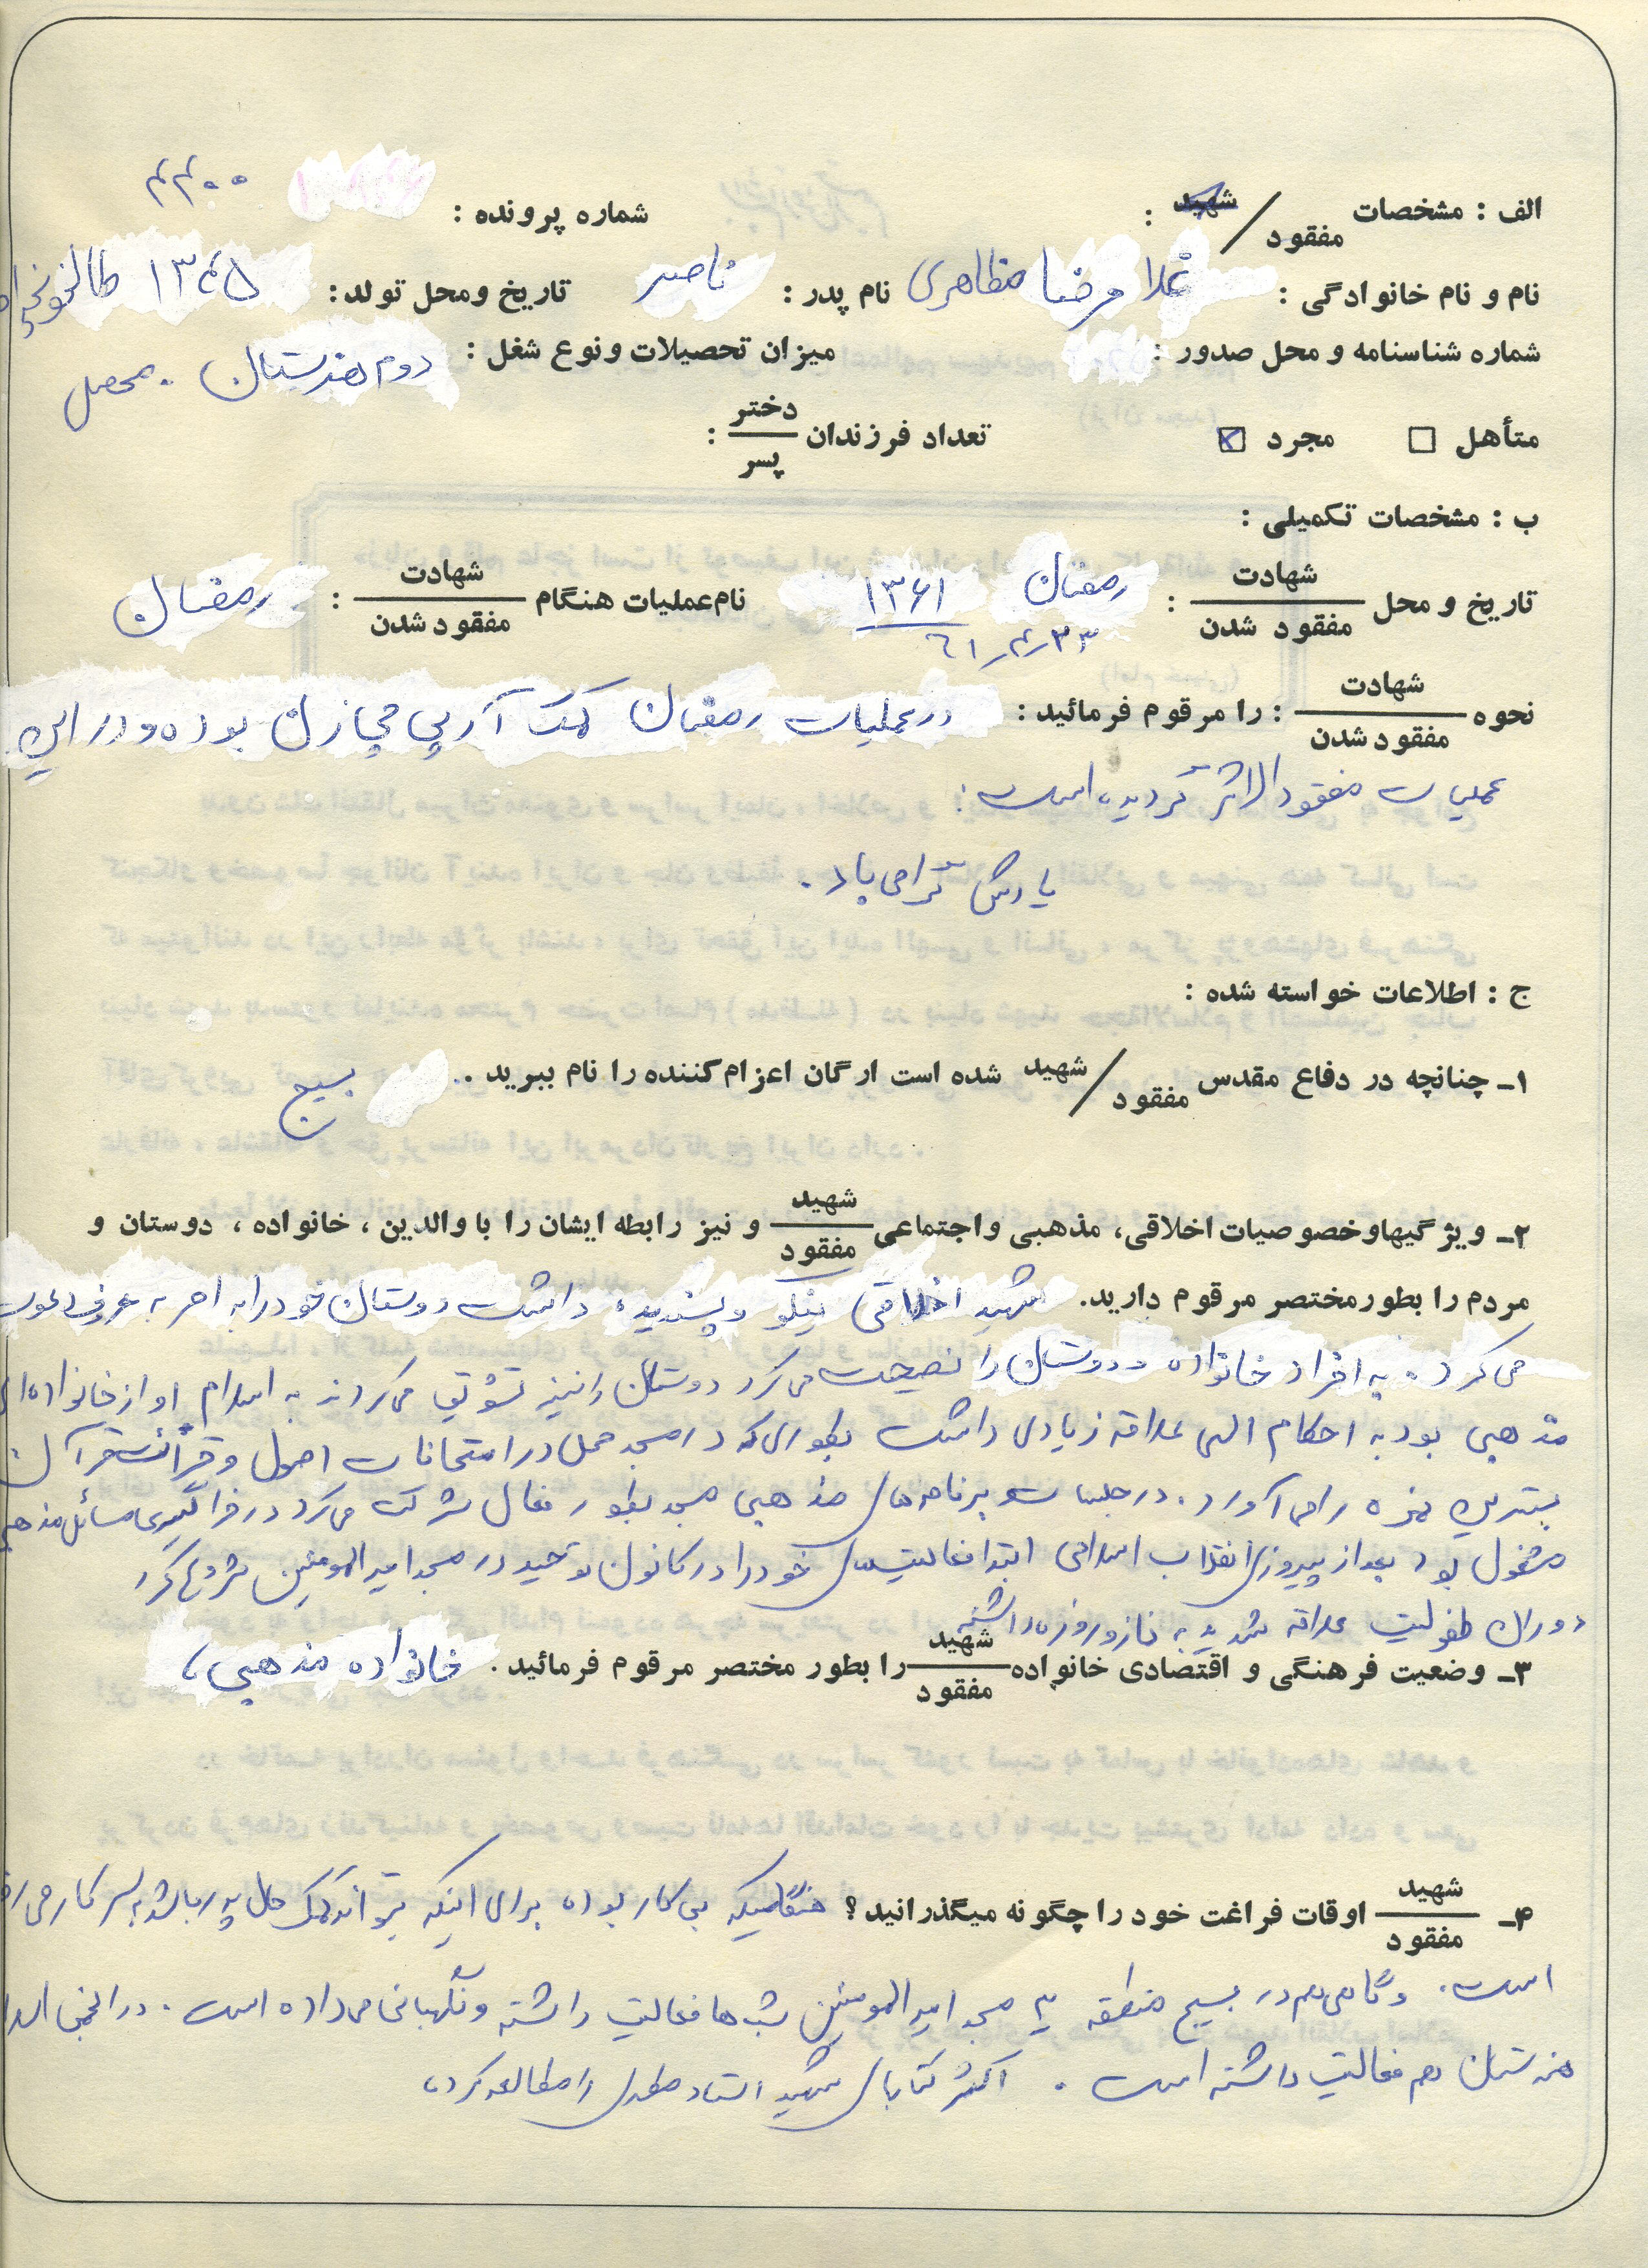 الف : مشخصات شهید / مفقود : شماره پرونده : ۴۴۰۰
نام و نام خانوادگی : غلامرضا مظاهری نام پدر : ناصر تاریخ ومحل تولد : ۱۳۴۵ طالخونچه
شماره شناسنامه و محل صدور : میزان تحصیلات ونوع شغل : دوم هنرستان . محصل
متأهل □ مجرد ☒ تعداد فرزندان دختر / پسر :
ب : مشخصات تکمیلی :
تاریخ و محل شهادت / مفقود شدن : رمضان ۱۳۶۱ نام عملیات هنگام شهادت / مفقود شدن : رمضان
۶۱/۴/۲۳
نحوه شهادت / مفقود شدن : را مرقوم فرمائید : در عملیات رمضان کمک آرپی چی زن بوده و در این
عملیات مفقودالاثر گردیده است :
یادش گرامی باد .
ج : اطلاعات خواسته شده :
۱ـ چنانچه در دفاع مقدس شهید / مفقود شده است ارگان اعزام کننده را نام ببرید . بسیج
۲ـ ویژگیها وخصوصیات اخلاقی، مذهبی واجتماعی شهید / مفقود و نیز رابطه ایشان را با والدین ، خانواده ، دوستان و
مردم را بطور مختصر مرقوم دارید. شهید اخلاقی نیکو و پسندیده داشت دوستان خود را به امر به معروف دعوت
می کرد . به افراد خانواده و دوستان را نصیحت می کرد دوستان را نیز تشویق می کردند به اسلام او از خانواده ای
مذهبی بود به احکام الهی علاقه زیادی داشت بطوری که در مسجد محل در امتحانات اصول و قرائت قرآن
بهترین نمره را می آورد . در جلسات و برنامه های مذهبی مسجد بطور فعال شرکت می کرد در فراگیری مسائل مذهبی
مشغول بود بعد از پیروزی انقلاب اسلامی ابتدا فعالیتهای خود را در کانون توحید در مسجد امیرالمومنین شروع کرد
دوران طفولیت علاقه شدید به نماز و روزه داشته
۳ـ وضعیت فرهنگی و اقتصادی خانواده شهید / مفقود را بطور مختصر مرقوم فرمائید . خانواده مذهبی
۴ـ شهید / مفقود اوقات فراغت خود را چگونه میگذرانید ؟ هنگامیکه بی کار بوده برای اینکه بتواند کمک حال پدر باشد به سر کار می رفته
است . و گاهی هم در بسیج منطقه مسجد امیرالمومنین شب ها فعالیت داشته و نگهبانی می داده است . در انجمن
هنرستان هم فعالیت داشته است . اکثر کتابهای شهید استاد مطهری را مطالعه کرده